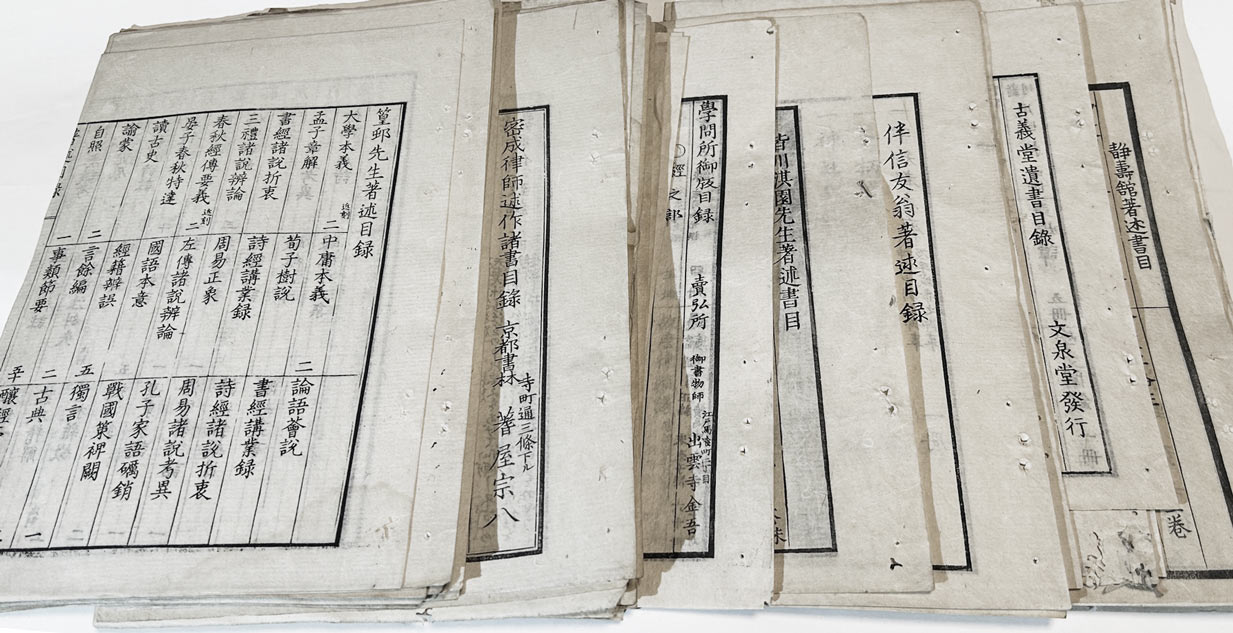 静壽館著述書目
卷
古義堂遺書目錄 文泉堂發行
伴信友翁著述目録
皆川淇園先生著述書目
學問所御版目録 賣弘所 御書物師 出雲寺金吾
經之部
密成律師述作諸書目録 京都書林 寺町通三條下ル 屋宗八
篁邨先生著述目録
大學本義 近刻 二 中庸本義 二 論語薈說
孟子章解 荀子樹說 書經講業録
書經諸說折衷 詩經講業録 詩經諸說折衷
三禮諸說辨論 周易正象 周易諸說考異
春秋經傳要義 近刻 二 左傳諸說辨論 孔子家語礪銷
晏子春秋特達 國語本意 戰國策裨闕
讀古史 經籍辨誤 五 獨言
諭蒙 二 言餘編 二 古典 一
自照 一 事類節要